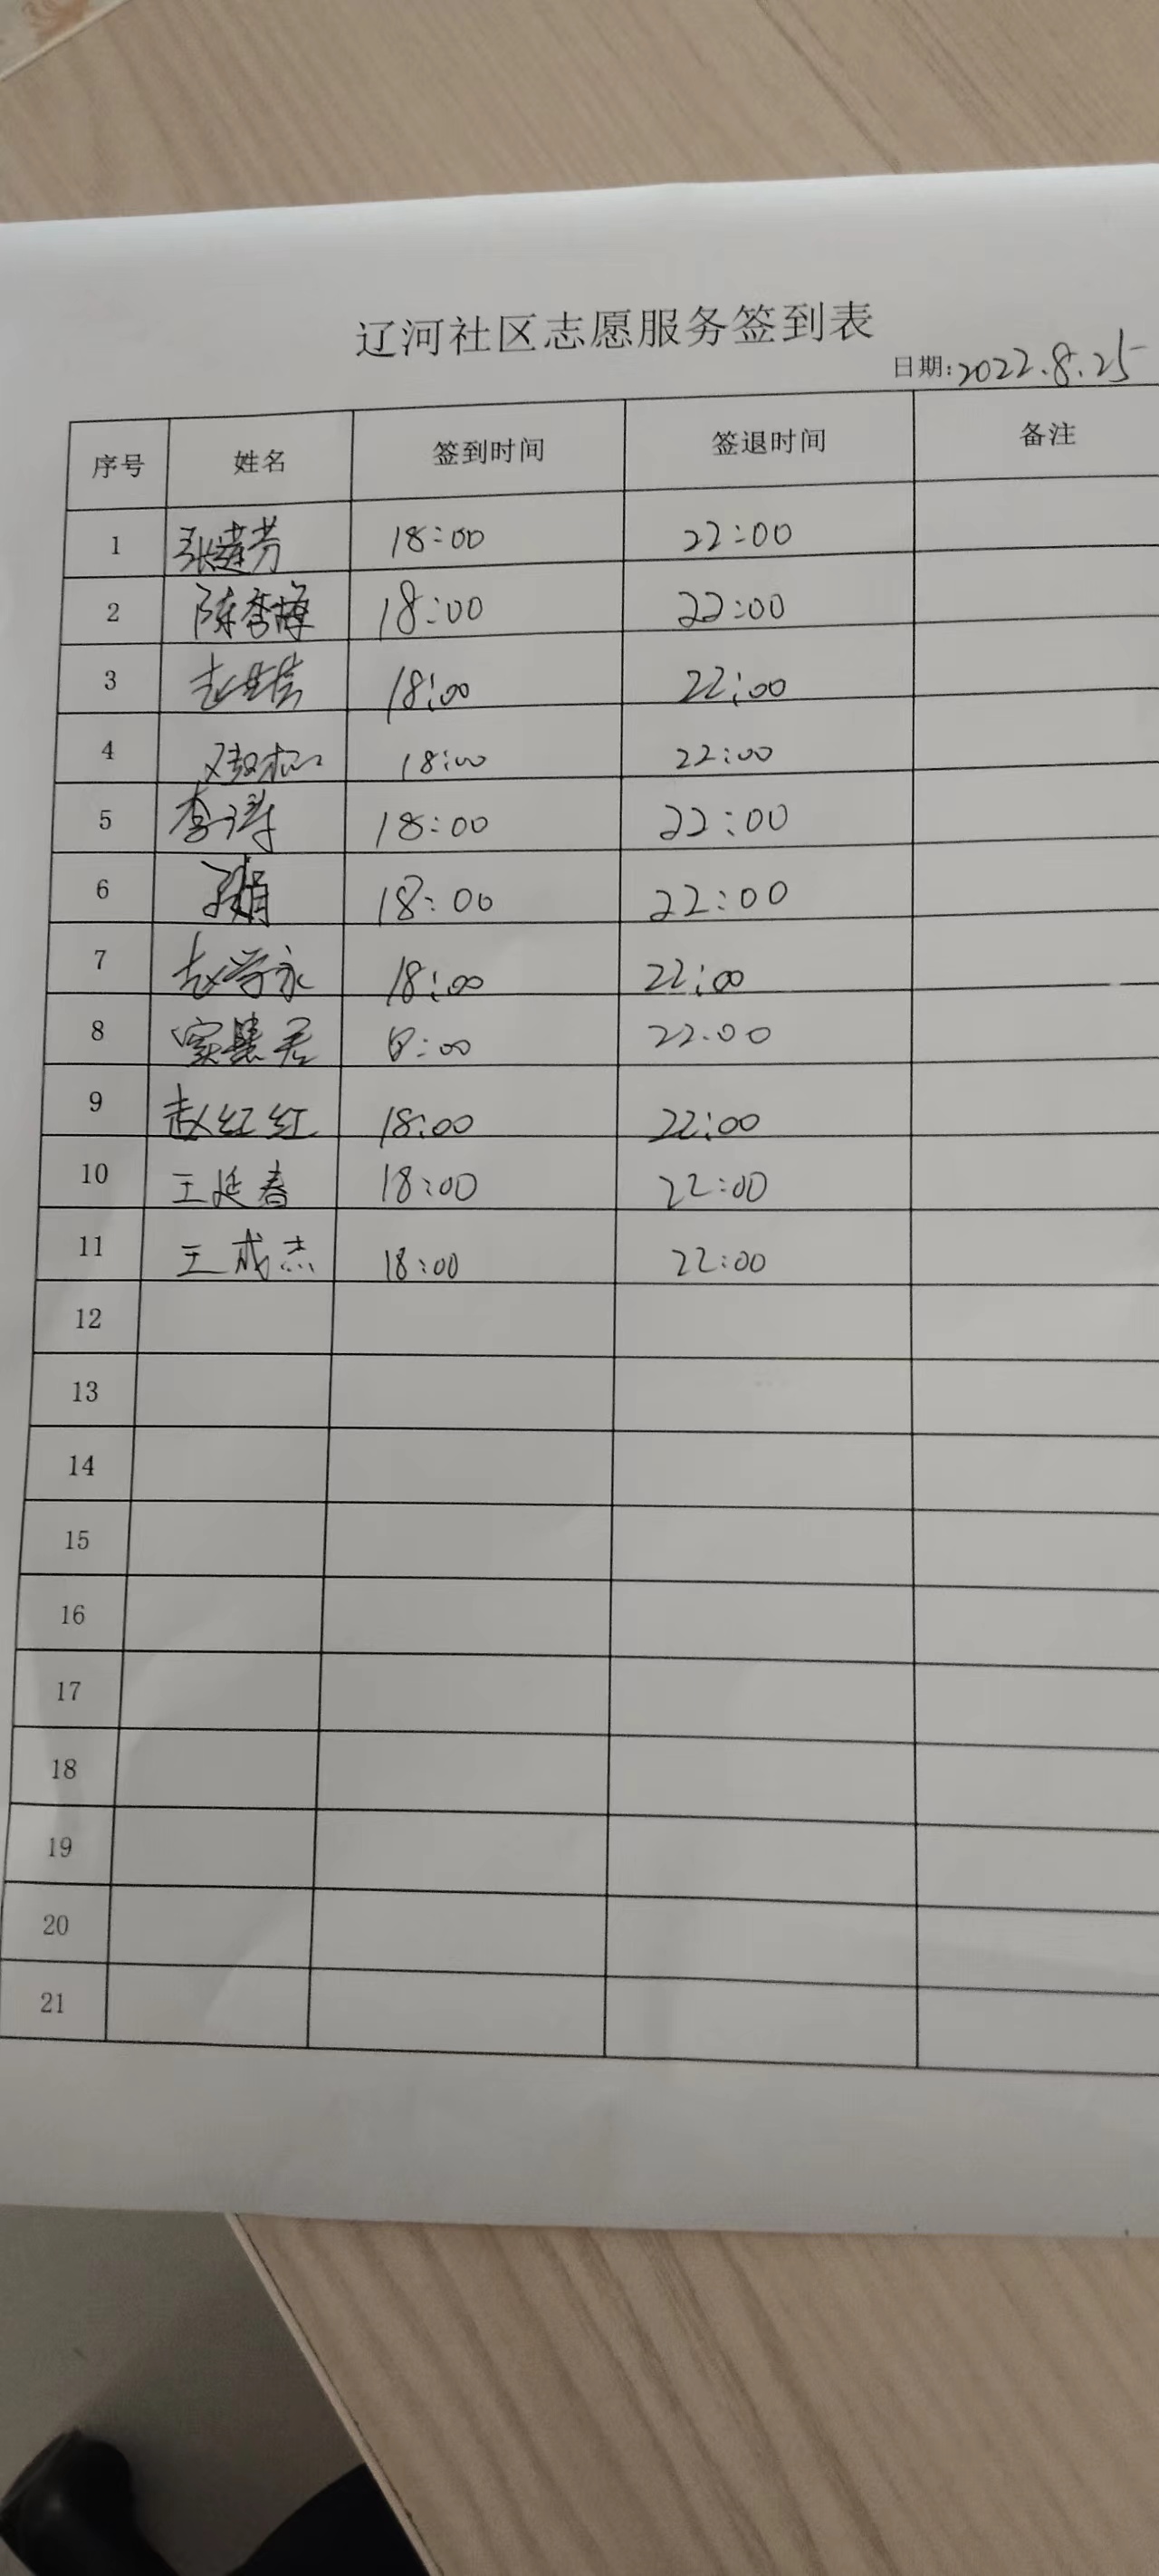 辽河社区志愿服务签到表
日期:2022.8.25
序号 姓名 签到时间 签退时间 备注
1 张莲芳 18:00 22:00
2 陈秀梅 18:00 22:00
3 18:00 22:00
4 18:00 22:00
5 李涛 18:00 22:00
6 18:00 22:00
7 赵学永 18:00 22:00
8 窦慧君 :00 22.00
9 赵红红 18:00 22:00
10 王延春 18:00 22:00
11 王成杰 18:00 22:00
12
13
14
15
16
17
18
19
20
21